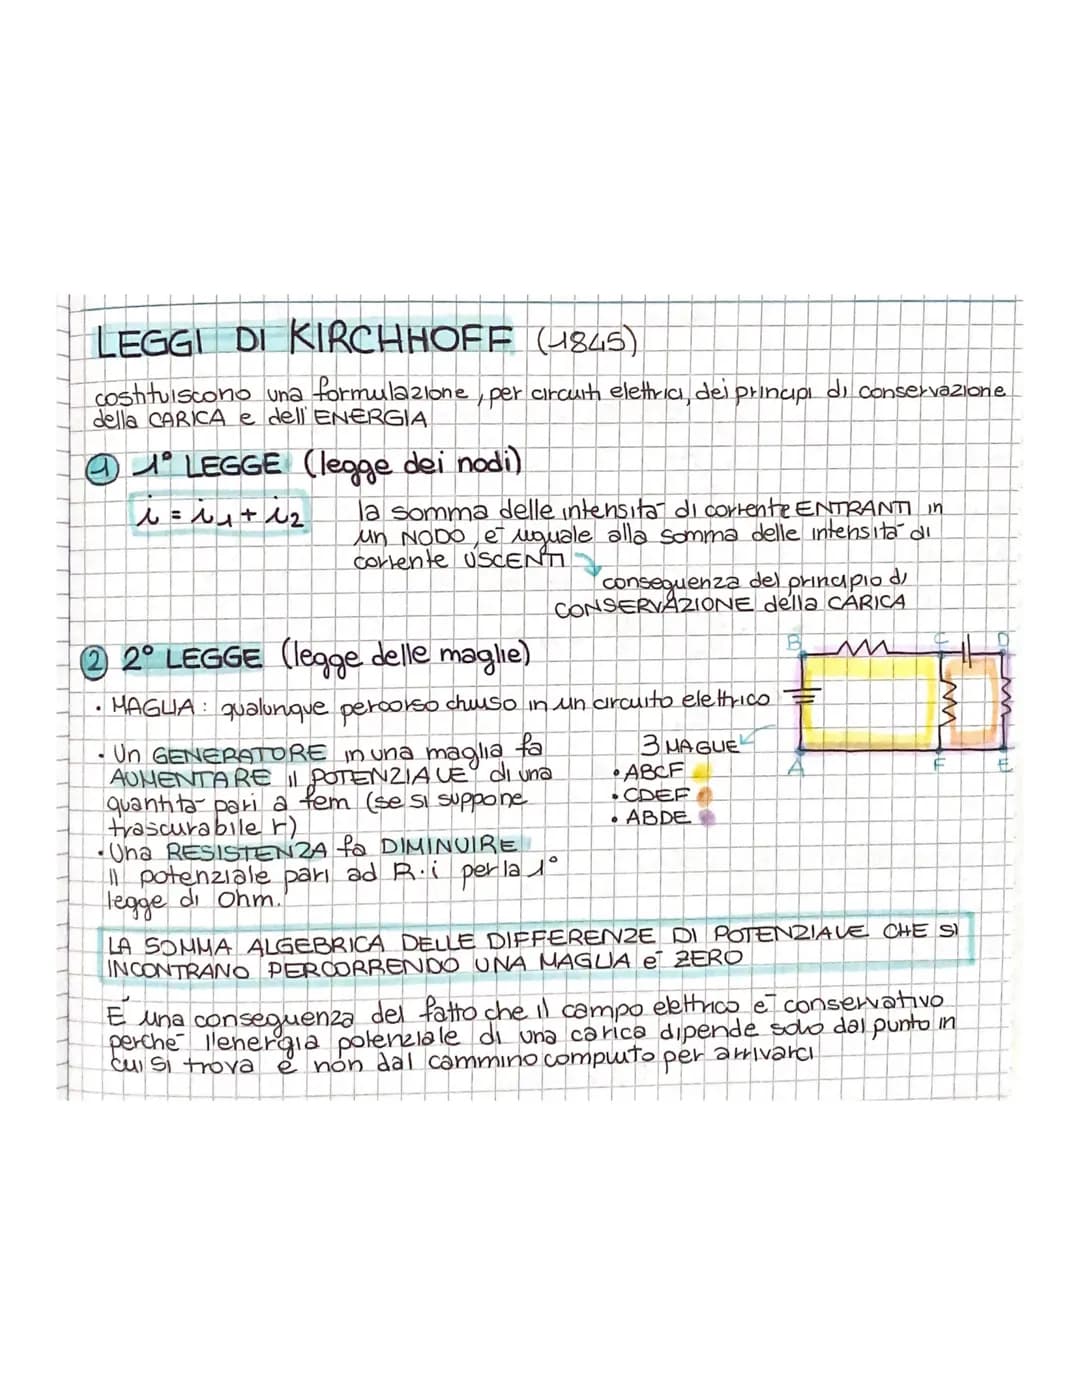 LEGGI DI KIRCHHOFF (1845)
costituiscono una formulazione, per circuiti elettrici, dei principi di conservazione
della CARICA e dell'ENERGIA
1 1° LEGGE (legge dei nodi)
i = i1 + i2
la somma delle intensità di corrente ENTRANTI in
un NODO, è uguale alla somma delle intensità di
corrente USCENTI
conseguenza del principio di
CONSERVAZIONE della CARICA
2 2° LEGGE (legge delle maglie)
B C D
• MAGLIA: qualunque percorso chiuso in un circuito elettrico
A F E
• Un GENERATORE in una maglia fa
AUMENTARE il POTENZIALE di una
quantità pari a fem (se si suppone
trascurabile r)
3 MAGLIE
• ABCF
• CDEF
• ABDE
• Una RESISTENZA fa DIMINUIRE
Il potenziale pari ad R·i per la 1°
legge di Ohm.
LA SOMMA ALGEBRICA DELLE DIFFERENZE DI POTENZIALE CHE SI
INCONTRANO PERCORRENDO UNA MAGLIA è ZERO
É una conseguenza del fatto che il campo elettrico è conservativo
perchè l'energia potenziale di una carica dipende solo dal punto in
cui si trova e non dal cammino compiuto per arrivarci